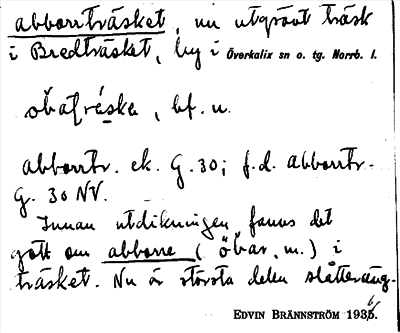 abborrträsket, nu utgrävt träsk
i Bredträsket, by i Överkalix sn o. tg. Norrb. l.
bf. n.
abborrtr. ek. G. 30; f.d. abborrtr.
G. 30 NV.
Innan utdikningen fanns det
gott om abborre (öbar, m.) i
träsket. Nu är största delen slåtteräng.
EDVIN BRÄNNSTRÖM 1935.